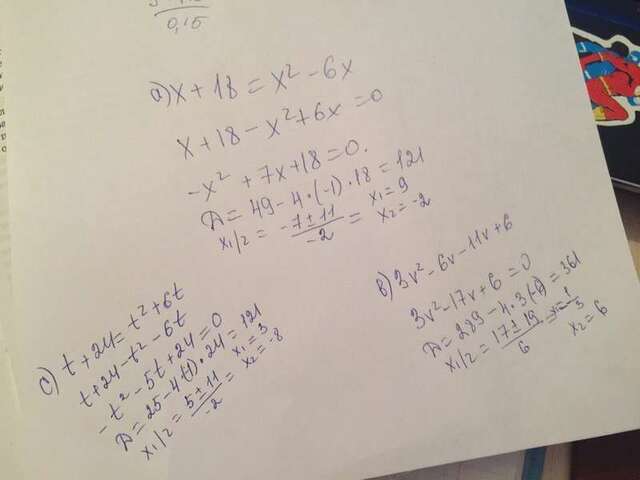 0,15
a) x + 18 = x² - 6x
x + 18 - x² + 6x = 0
-x² + 7x + 18 = 0.
D = 49 - 4 · (-1) · 18 = 121
x₁/₂ = -7 ± 11 / -2 = x₁ = 9
x₂ = -2
в) 3v² - 6v - 11v + 6
3v² - 17v + 6 = 0
D = 289 - 4 · 3 = 361
x₁/₂ = 17 ± 19 / 6 = x = 1/3
x₂ = 6
c) t + 24 = t² + 6t
t + 24 - t² - 6t
-t² - 5t + 24 = 0
D = 25 - 4(-1) · 24 = 121
x₁/₂ = 5 ± 11 / -2 = x₁ = 3
x₂ = -8